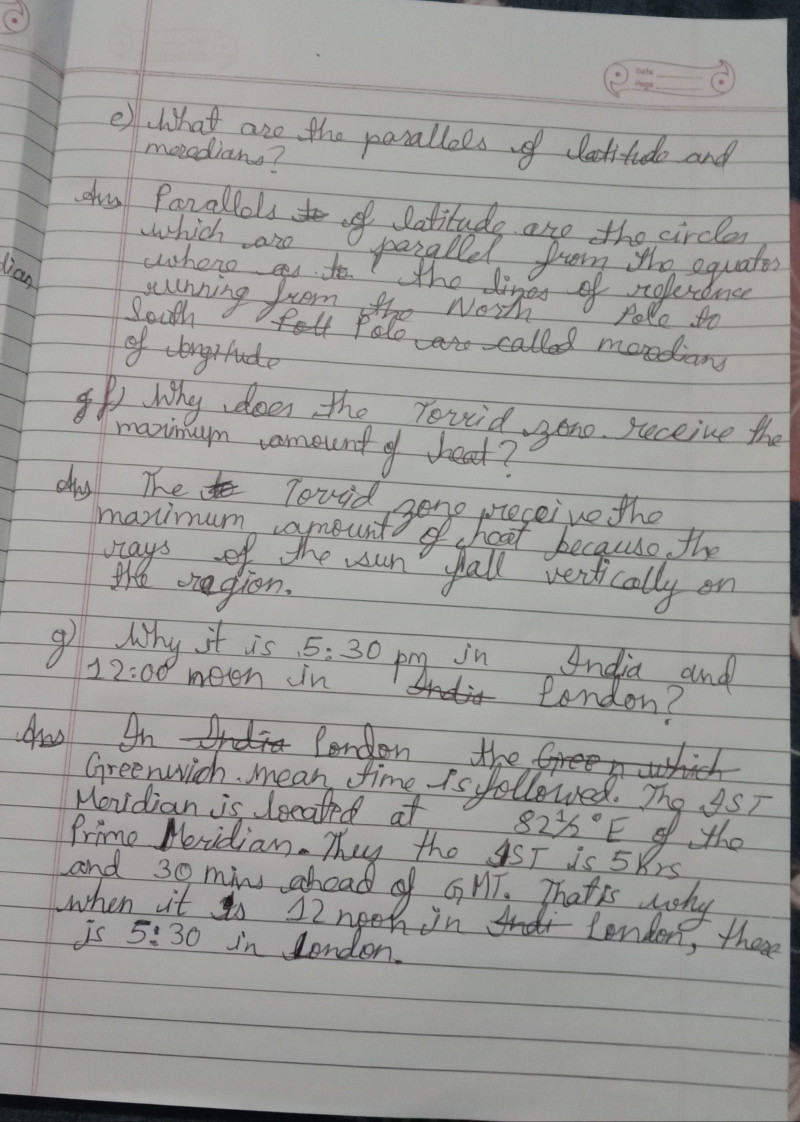 Date
Page
e) What are the parallels of latitude and
meredians?
Ans Parallels to of latitude are the circles
which are parallel from the equator
where as to the lines of reference
dian
running from the North Pole to
South Poll Pole are called meredians
of longitude
g f) Why does the Torrid zone receive the
maximum amount of heat?
Ans The to Torrid zone receive the
maximum amount of heat because the
rays of the sun fall vertically on
the region.
g) Why it is 5:30 pm in India and
12:00 noon in India London?
Ans In India London the Green which
Greenwich mean time is followed. The IST
Meridian is located at 82½°E of the
Prime Meridian. They the IST is 5hrs
and 30 mins ahead of GMT. That is why
when it is 12 noon in Indi London, there
is 5:30 in London.